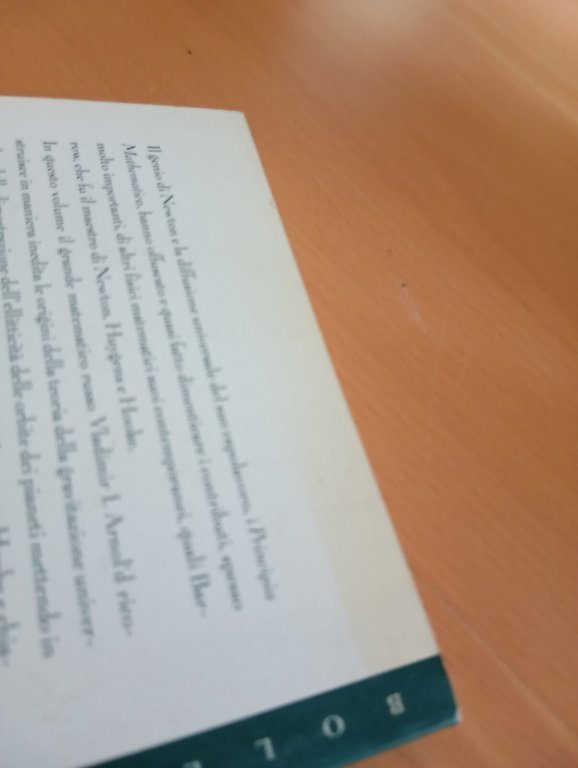 Il genio di Newton e la diffusione universale del suo capolavoro, i Principia
Mathematica, hanno offuscato e quasi fatto dimenticare i contributi, spesso
molto importanti, di altri fisici matematici suoi contemporanei, quali Bar-
row, che fu il maestro di Newton, Huygens e Hooke.
In questo volume il grande matematico russo Vladimir I. Arnol'd rico-
struisce in maniera inedita le origini della teoria della gravitazione univer-
dell'ellitticità delle orbite dei pianeti mettendo in
Hooke e
B O L